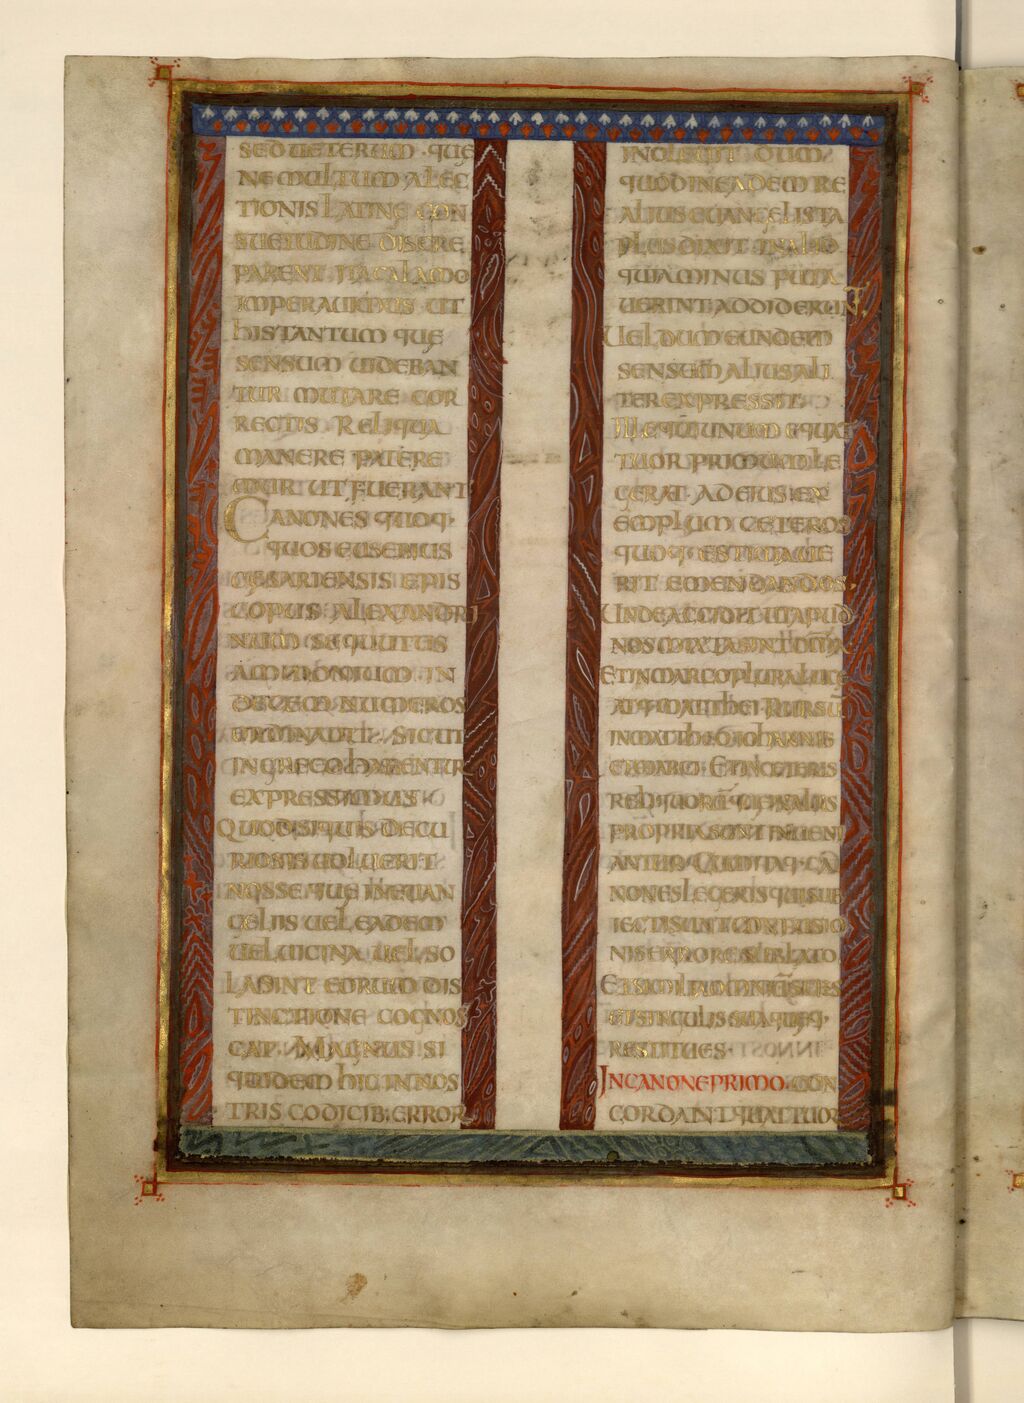 SED UETERUM · QUE
NE MULTUM A LEC
TIONIS LATINE CON
SUETUDINE DISCRE
PARENT · ITA CALAMO
IMPERAUIMUS UT
HIS TANTUM QUE
SENSUM UIDEBAN
TUR MUTARE COR
RECTIS RELIQUA
MANERE PATERE
MUR UT FUERANT ·
CANONES QUOQ·
QUOS EUSEBIUS
CESARIENSIS EPIS
COPUS ALEXANDRI
NUM SEQUUTUS
AMMONIUM IN
DECEM NUMEROS
SICUT
IN GRECO HABENTUR
EXPRESSIMUS
QUOD SI QUIS DE CU
RIOSIS UOLUERIT
NOSSE QUE IN EUAN
GELIIS UEL EADEM
UEL UICINA UEL SO
LA SINT EORUM DIS
TINCTIONE COGNOS
CAT · MAGNUS SI
QUIDEM HIC IN NOS
TRIS CODICIB: ERROR
INOLEUIT DUM
QUOD IN EADEM RE
ALIUS EUANGELISTA
PLUS DIXIT IN ALIO
QUIA MINUS PUTA
UERINT ADDIDERUNT
UEL DUM EUNDEM
SENSUM ALIUS ALI
TER EXPRESSIT
ILLE QUI UNUM E QUAT
TUOR PRIMUM LE
GERAT · AD EIUS EX
EMPLUM CETEROS
QUOQ· ESTIMAUE
RIT EMENDANDOS ·
UNDE ACCIDIT UT APUD
NOS MIXTA SINT OMNIA
ET IN MARCO PLURA LUCE
ATQ· MATTHEI RURSU
IN MATTHEO IOHANNIS
ET MARCI · ET IN CETERIS
RELIQUORUM QUE ALIIS
PROPRIA SUNT INUEN
ANTUR · CUM ITAQ· CA
NONES LEGERIS QUI SUB
IECTI SUNT CONFUSIO
NIS ERRORE SUBLATO
ET SIMILIA OMNIUM SCIES
ET SINGULIS SUA QUEQ·
RESTITUES ·
IN CANONE PRIMO · CON
CORDANT QUATTUOR